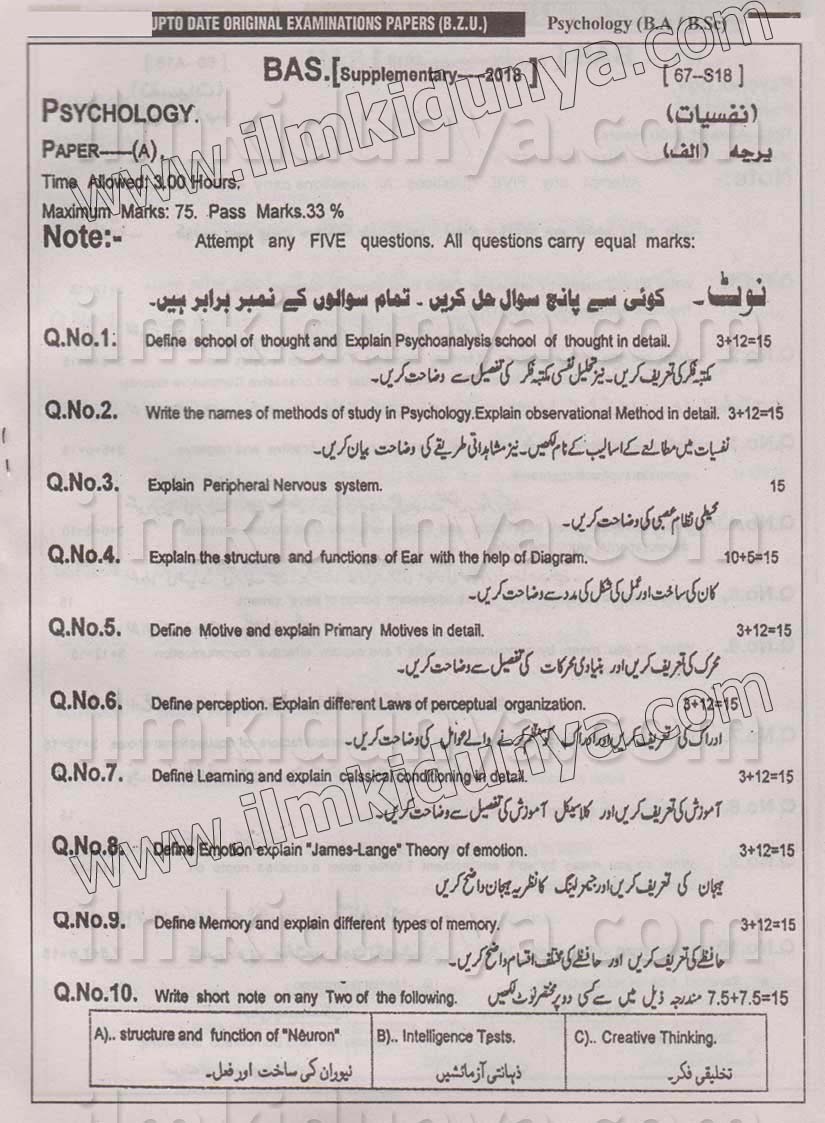 UPTO DATE ORIGINAL EXAMINATIONS PAPERS (B.Z.U.) Psychology (B.A / B.Sc)
BAS.[Supplementary----2018 ] [ 67--S18 ]
PSYCHOLOGY. (نفسیات)
PAPER-----(A) پرچہ (الف)
Time Allowed: 3.00 Hours.
Maximum Marks: 75. Pass Marks.33 %
Note:- Attempt any FIVE questions. All questions carry equal marks:
نوٹ۔ کوئی سے پانچ سوال حل کریں ۔ تمام سوالوں کے نمبر برابر ہیں۔
Q.No.1. Define school of thought and Explain Psychoanalysis school of thought in detail. 3+12=15
مکتبہ فکر کی تعریف کریں۔ نیز تحلیل نفسی مکتبہ فکر کی تفصیل سے وضاحت کریں۔
Q.No.2. Write the names of methods of study in Psychology.Explain observational Method in detail. 3+12=15
نفسیات میں مطالعے کے اسالیب کے نام لکھیں۔ نیز مشاہداتی طریقے کی وضاحت بیان کریں۔
Q.No.3. Explain Peripheral Nervous system. 15
محیطی نظام عصبی کی وضاحت کریں۔
Q.No.4. Explain the structure and functions of Ear with the help of Diagram. 10+5=15
کان کی ساخت اور عمل کی شکل کی مدد سے وضاحت کریں۔
Q.No.5. Define Motive and explain Primary Motives in detail. 3+12=15
محرک کی تعریف کریں اور بنیادی محرکات کی تفصیل سے وضاحت کریں۔
Q.No.6. Define perception. Explain different Laws of perceptual organization. 3+12=15
ادراک کی تعریف کریں اور ادراک کو منظم کرنے والے عوامل کی وضاحت کریں۔
Q.No.7. Define Learning and explain calssical conditioning in detail. 3+12=15
آموزش کی تعریف کریں اور کلاسیکل آموزش کی تفصیل سے وضاحت کریں۔
Q.No.8. Define Emotion explain "James-Lange" Theory of emotion. 3+12=15
ہیجان کی تعریف کریں اور جیمز لینگ کا نظریہ ہیجان واضح کریں
Q.No.9. Define Memory and explain different types of memory. 3+12=15
حافظے کی تعریف کریں اور حافظے کی مختلف اقسام واضح کریں۔
Q.No.10. Write short note on any Two of the following. مندرجہ ذیل میں سے کسی دو پر مختصر نوٹ لکھیں 7.5+7.5=15
A).. structure and function of "Neuron" B).. Intelligence Tests. C).. Creative Thinking.
نیوران کی ساخت اور فعل۔ ذہانتی آزمائشیں تخلیقی فکر۔
www.ilmkidunya.com
www.ilmkidunya.com
ilmkidunya.com
ilmkidunya.com
ilmkidunya.com
ilmkidunya.com
ilmkidunya.com
ilmkidunya.com